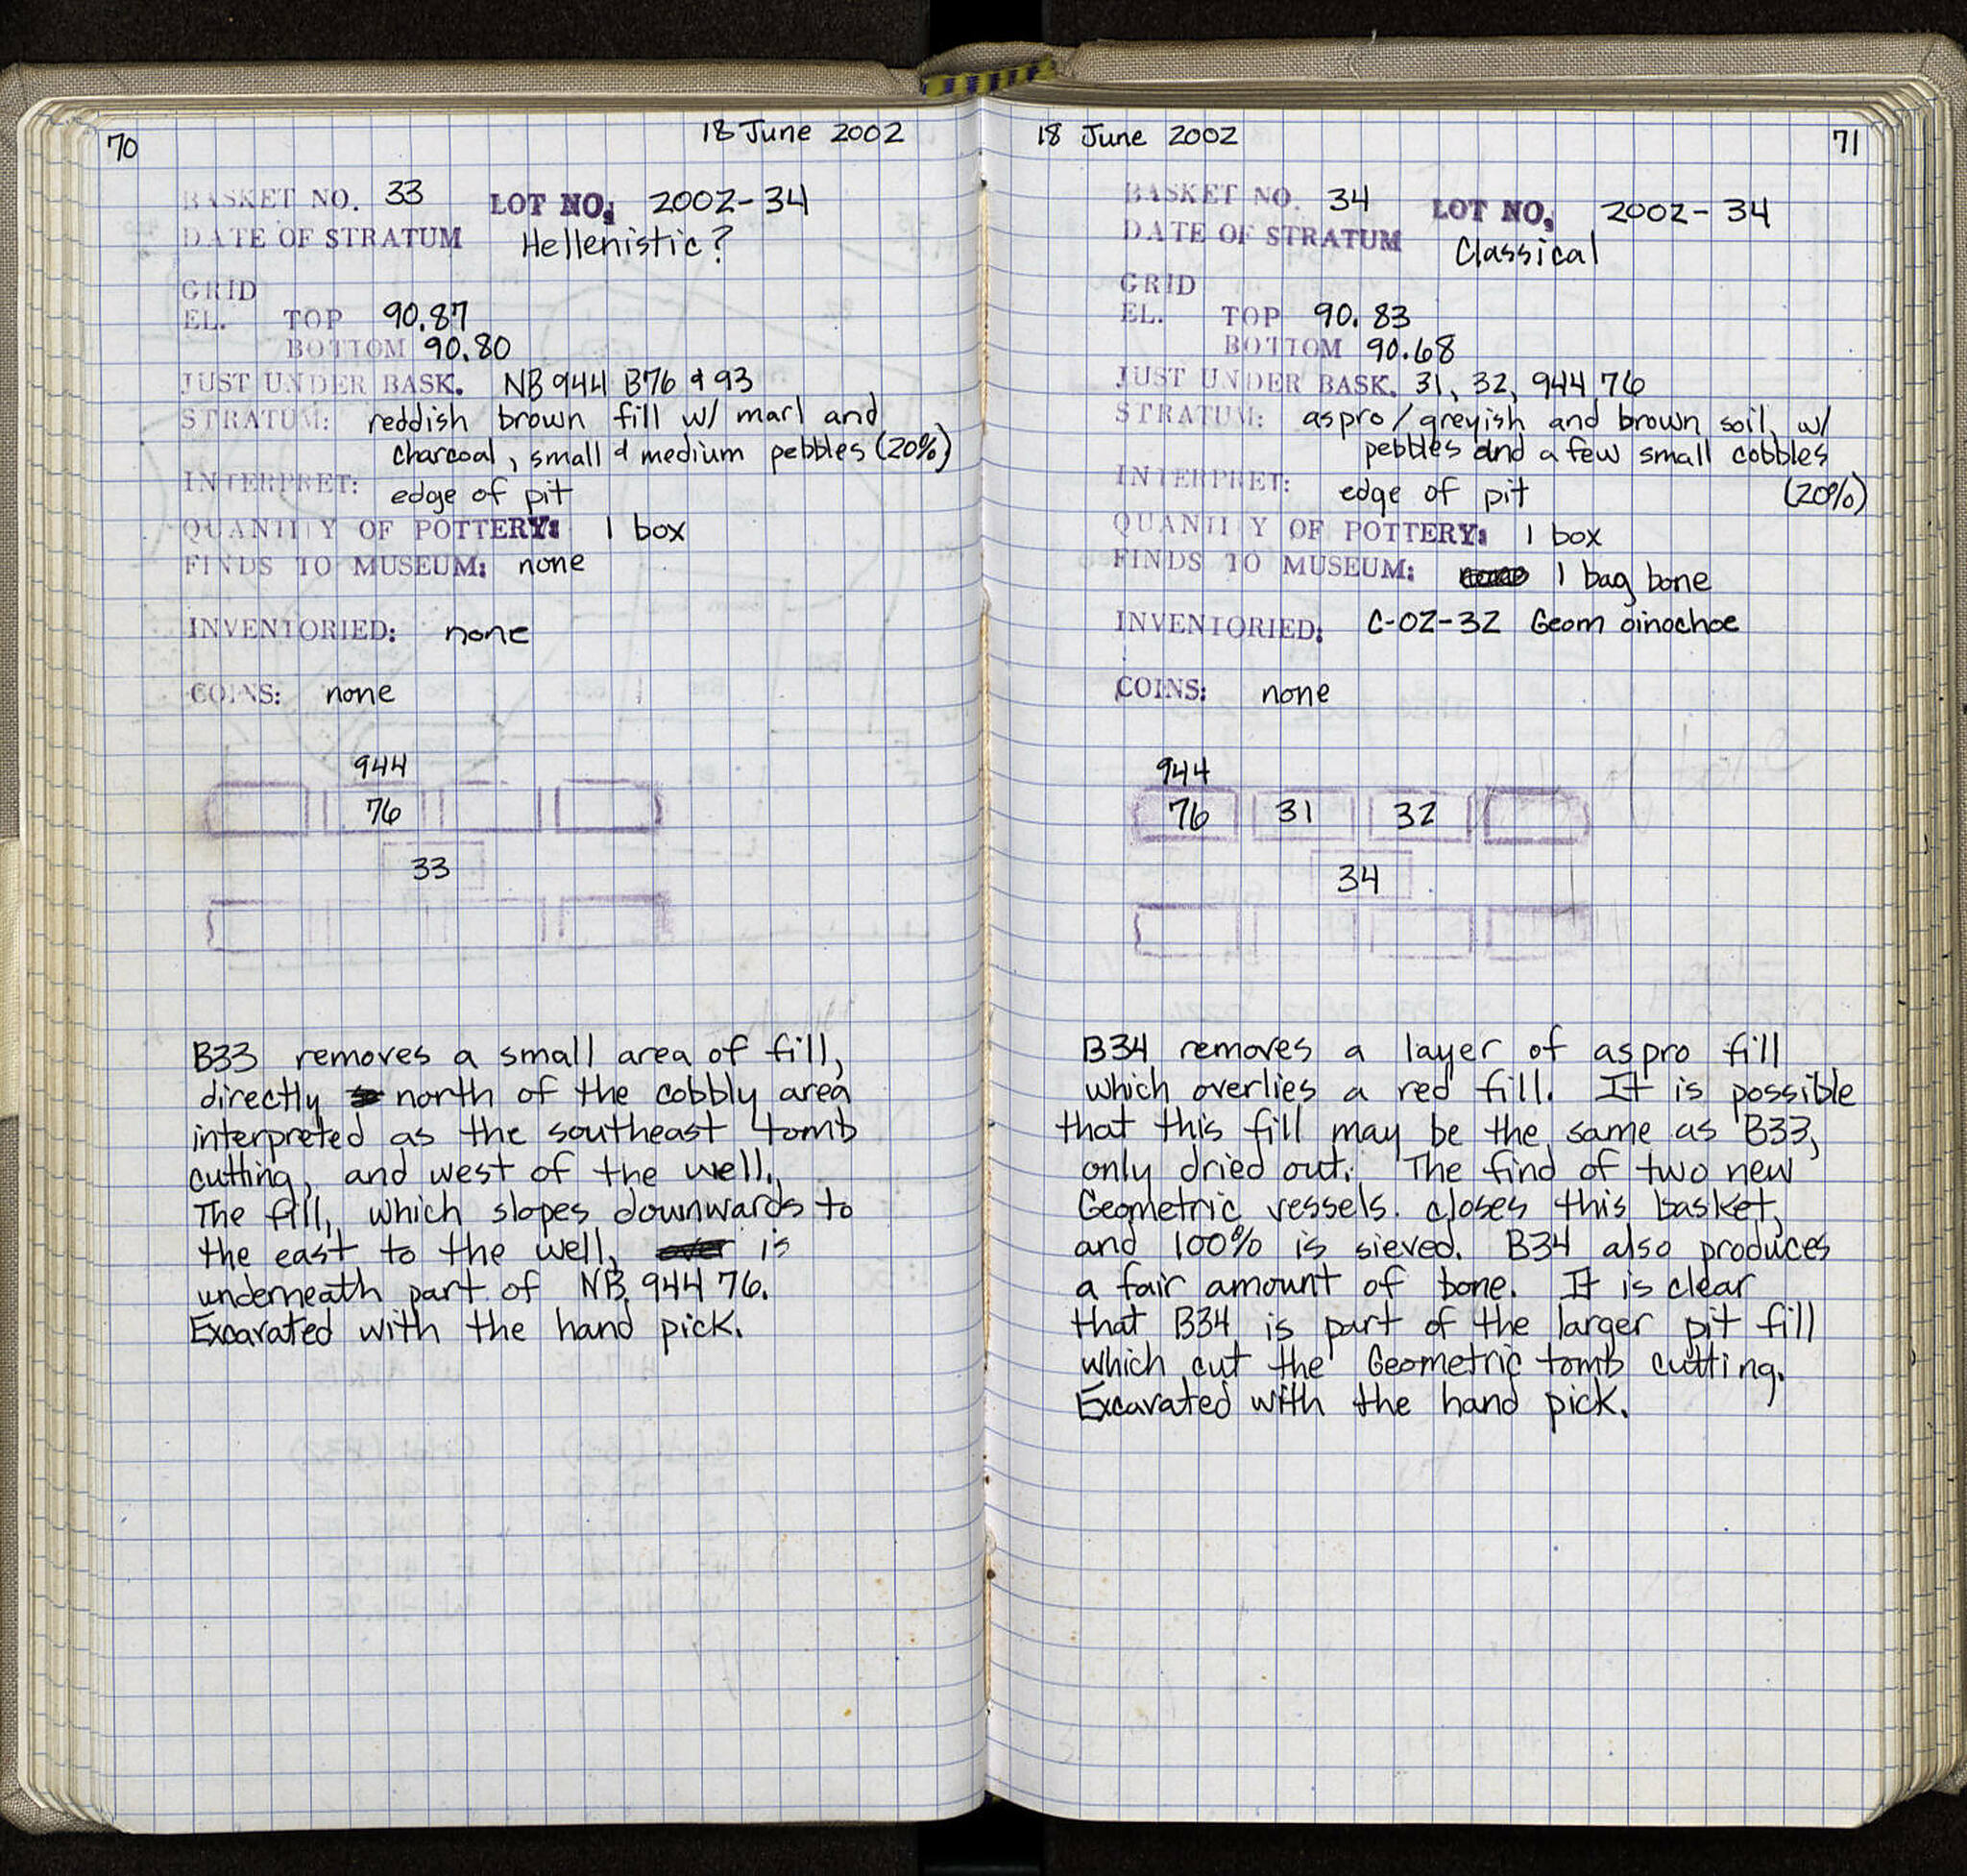 70
18 June 2002
BASKET NO. 33 LOT NO. 2002-34
DATE OF STRATUM Hellenistic?
GRID
EL. TOP 90.87
BOTTOM 90.80
JUST UNDER BASK. NB 944 B76 & 93
STRATUM: reddish brown fill w/ marl and
charcoal, small & medium pebbles (20%)
INTERPRET: edge of pit
QUANTITY OF POTTERY: 1 box
FINDS TO MUSEUM: none
INVENTORIED: none
COINS: none
944
76
33
B33 removes a small area of fill,
directly north of the cobbly area
interpreted as the southeast tomb
cutting, and west of the well.
The fill, which slopes downwards to
the east to the well, is
underneath part of NB 944 76.
Excavated with the hand pick.
18 June 2002
71
BASKET NO. 34 LOT NO. 2002-34
DATE OF STRATUM Classical
GRID
EL. TOP 90.83
BOTTOM 90.68
JUST UNDER BASK. 31, 32, 944 76
STRATUM: aspro/greyish and brown soil, w/
pebbles and a few small cobbles
INTERPRET: edge of pit (20%)
QUANTITY OF POTTERY: 1 box
FINDS TO MUSEUM: 1 bag bone
INVENTORIED: C-02-32 Geom oinochoe
COINS: none
944
76 31 32
34
B34 removes a layer of aspro fill
which overlies a red fill. It is possible
that this fill may be the same as B33,
only dried out. The find of two new
Geometric vessels. closes this basket,
and 100% is sieved. B34 also produces
a fair amount of bone. It is clear
that B34 is part of the larger pit fill
which cut the Geometric tomb cutting.
Excavated with the hand pick.